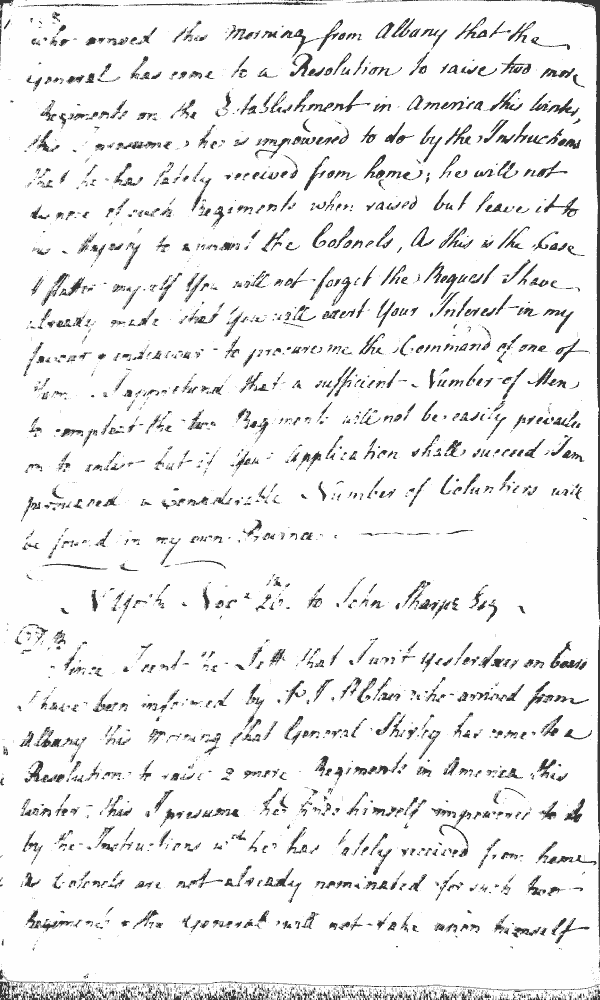 who arrived this Morning from Albany that the
General has come to a Resolution to raise two more
Regiments on the Establishment in America this Winter,
this I presume he is impowered to do by the Instructions
that he has lately received from home; he will not
dispose of such Regiments when raised but leave it to
his Majesty to appoint the Colonels, As this is the Case
I flatter myself You will not forget the Request I have
already made that You will exert Your Interest in my
favour & endeavour to procure me the Command of one of
them. I apprehend that a sufficient Number of Men
to compleat the two Regiments will not be easily prevaild
on to enlist but if Your Application shall succeed I am
perswaded a Considerable Number of Voluntiers will
be found in my own Province.
N York Novr 26th to John Sharpe Esq
Since I sent the Lettr that I writ yesterday on board
I have been informed by Clair who arrived from
Albany this Morning that General Shirley has come to a
Resolution to raise 2 more Regiments in America this
Winter; this I presume he finds himself impowered to do
by the Instructions wch he has lately received from home
As Colonels are not already nominated for such two
Regiments & the General will not take upon himself